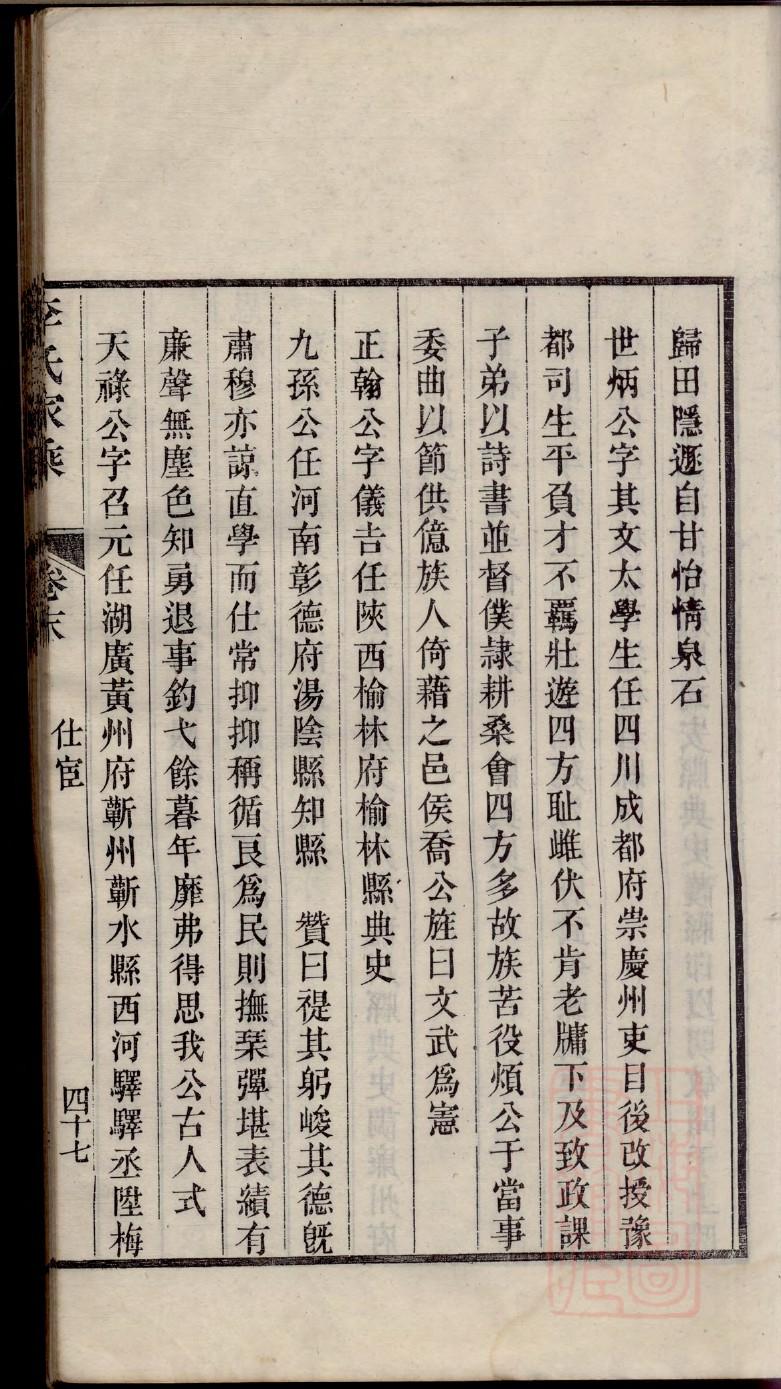 歸田隱遯自甘怡情泉石
世炳公字其文太學生任四川成都府崇慶州吏目後改授豫
都司生平負才不羈壯遊四方耻雌伏不肯老牖下及致政課
子弟以詩書並督僕隷耕桑會四方多故族苦役煩公于當事
委曲以節供億族人倚藉之邑侯喬公旌曰文武爲憲
正翰公字儀吉任陜西榆林府榆林縣典史
九孫公任河南彰德府湯陰縣知縣　贊曰禔其躬峻其德旣
肅穆亦諒直學而仕常抑抑稱循良爲民則撫琹彈堪表績有
亷聲無塵色知勇退事釣弋餘暮年靡弗得思我公古人式
天祿公字召元任湖廣黃州府蘄州蘄水縣西河驛驛丞陞梅
李氏家乘
卷末
仕宦
四十七